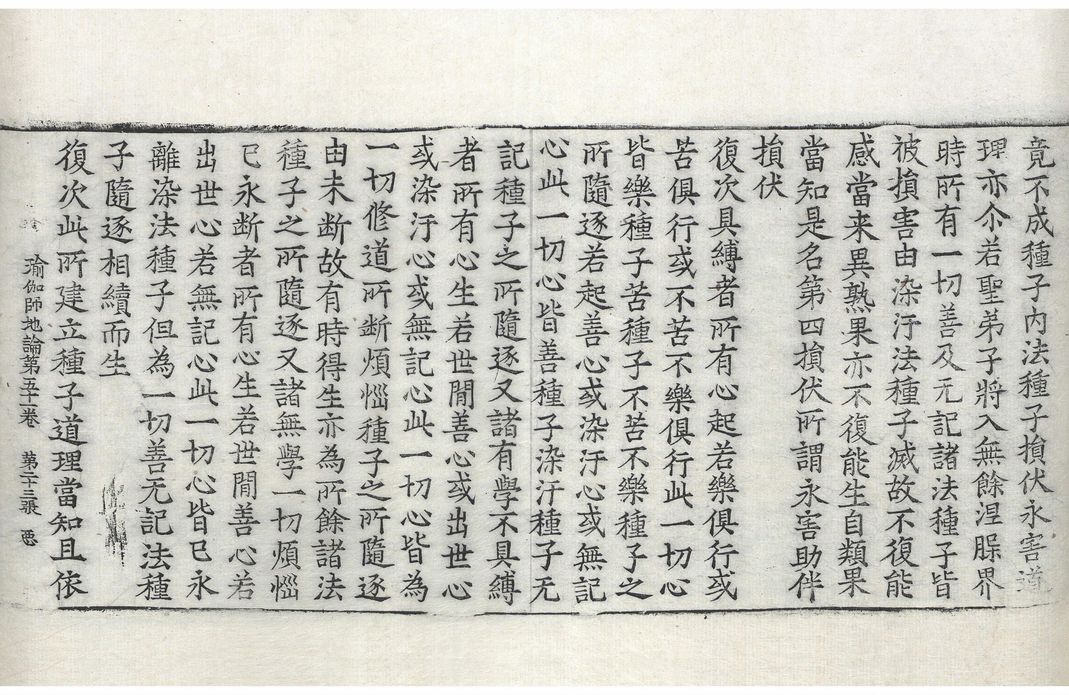 竟不成種子內法種子損伏永害道
理亦尒若聖弟子將入無餘涅槃界
時所有一切善及无記諸法種子皆
被損害由染汙法種子滅故不復能
感當来異熟果亦不復能生自類果
當知是名第四損伏所謂永害助伴
損伏
復次具縛者所有心起若樂俱行或
苦俱行或不苦不樂俱行此一切心
皆樂種子苦種子不苦不樂種子之
所隨逐若起善心或染汙心或無記
心此一切心皆善種子染汙種子无
記種子之所隨逐又諸有學不具縛
者所有心生若世閒善心或出世心
或染汙心或無記心此一切心皆為
一切修道所斷煩惱種子之所隨逐
由未断故有時得生亦為所餘諸法
種子之所隨逐又諸無學一切煩惱
已永断者所有心生若世閒善心若
出世心若無記心此一切心皆已永
離染法種子但為一切善无記法種
子隨逐相續而生
復次此所建立種子道理當知且依
瑜伽師地論第五十一卷 第二十三張 惡